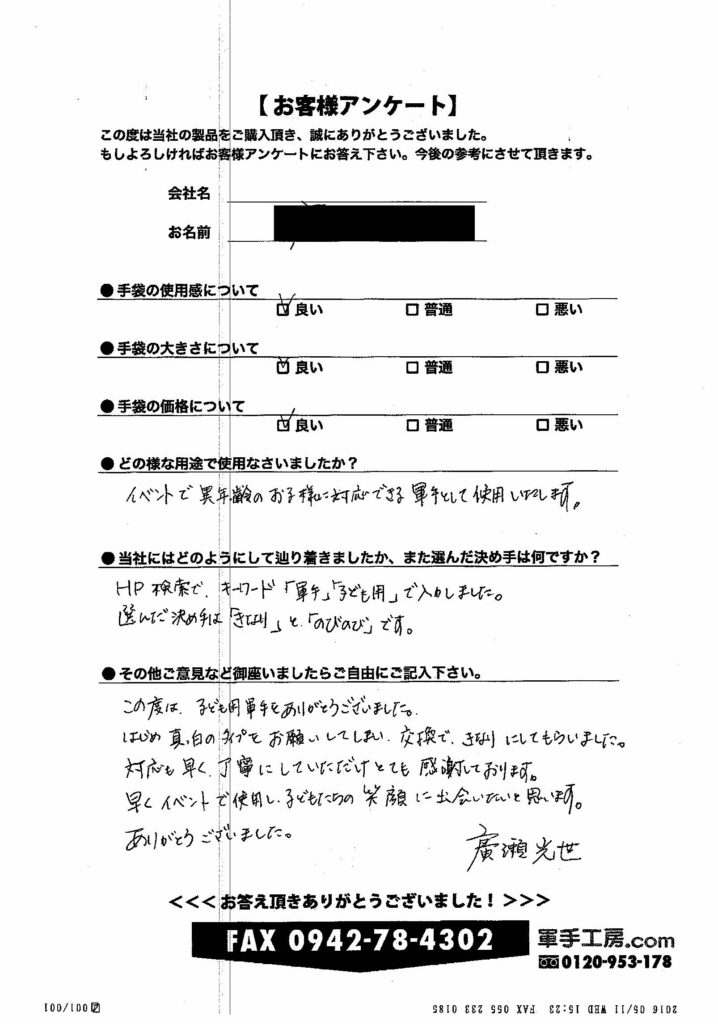 【お客様アンケート】
この度は当社の製品をご購入頂き、誠にありがとうございました。
もしよろしければお客様アンケートにお答え下さい。今後の参考にさせて頂きます。
会社名
お名前
●手袋の使用感について
良い 普通 悪い
●手袋の大きさについて
良い 普通 悪い
●手袋の価格について
良い 普通 悪い
●どの様な用途で使用なさいましたか？
イベントで異年齢のお子様に対応できる軍手として使用いたします。
●当社にはどのようにして辿り着きましたか、また選んだ決め手は何ですか？
HP検索で、キーワード「軍手」「子ども用」で入力しました。
選んだ決め手は「きなり」と「のびのび」です。
●その他ご意見など御座いましたらご自由にご記入下さい。
この度は、子ども用軍手をありがとうございました。
はじめ真っ白のタイプをお願いしてしまい、交換で、きなりにしてもらいました。
対応も早く、丁寧にしていただけとても感謝しております。
早くイベントで使用し、子どもたちの笑顔に出会いたいと思います。
ありがとうございました。
廣瀬光世
<<<お答え頂きありがとうございました！>>>
FAX 0942-78-4302
軍手工房.com
0120-953-178
2016 05/11 WED 15:23 FAX 055 233 0185
001/001